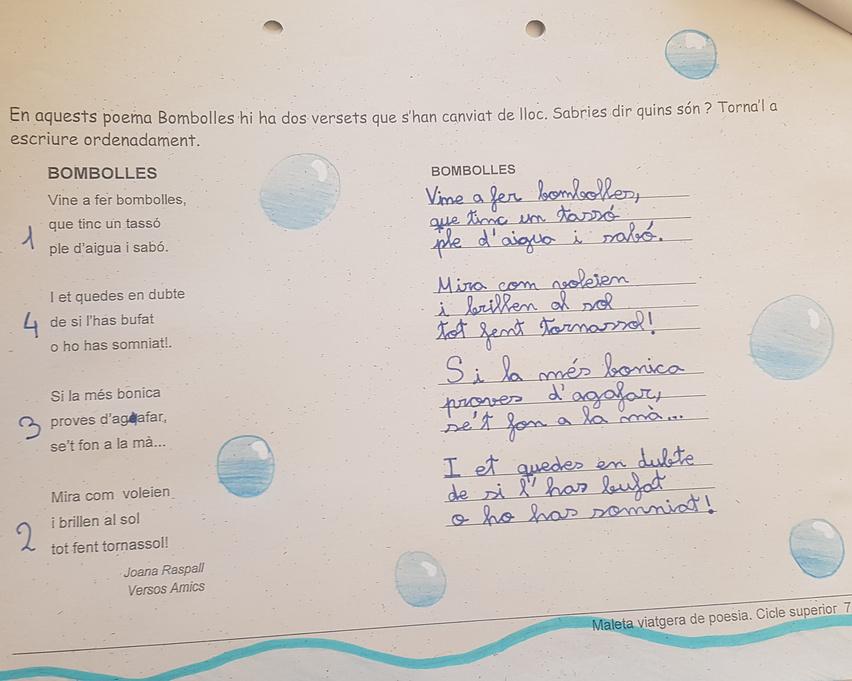 En aquests poema Bombolles hi ha dos versets que s'han canviat de lloc. Sabries dir quins són ? Torna'l a
escriure ordenadament.
BOMBOLLES
Vine a fer bombolles,
que tinc un tassó
1
ple d'aigua i sabó.
I et quedes en dubte
4
de si l'has bufat
o ho has somniat!.
Si la més bonica
3
proves d'agafar,
se't fon a la mà...
Mira com voleien
2
i brillen al sol
tot fent tornassol!
Joana Raspall
Versos Amics
BOMBOLLES
Vine a fer bombolles,
que tinc un tassó
ple d'aigua i sabó.
Mira com voleien
i brillen al sol
tot fent tornassol!
Si la més bonica
proves d'agafar,
se't fon a la mà...
I et quedes en dubte
de si l'has bufat
o ho has somniat!
Maleta viatgera de poesia. Cicle superior 7